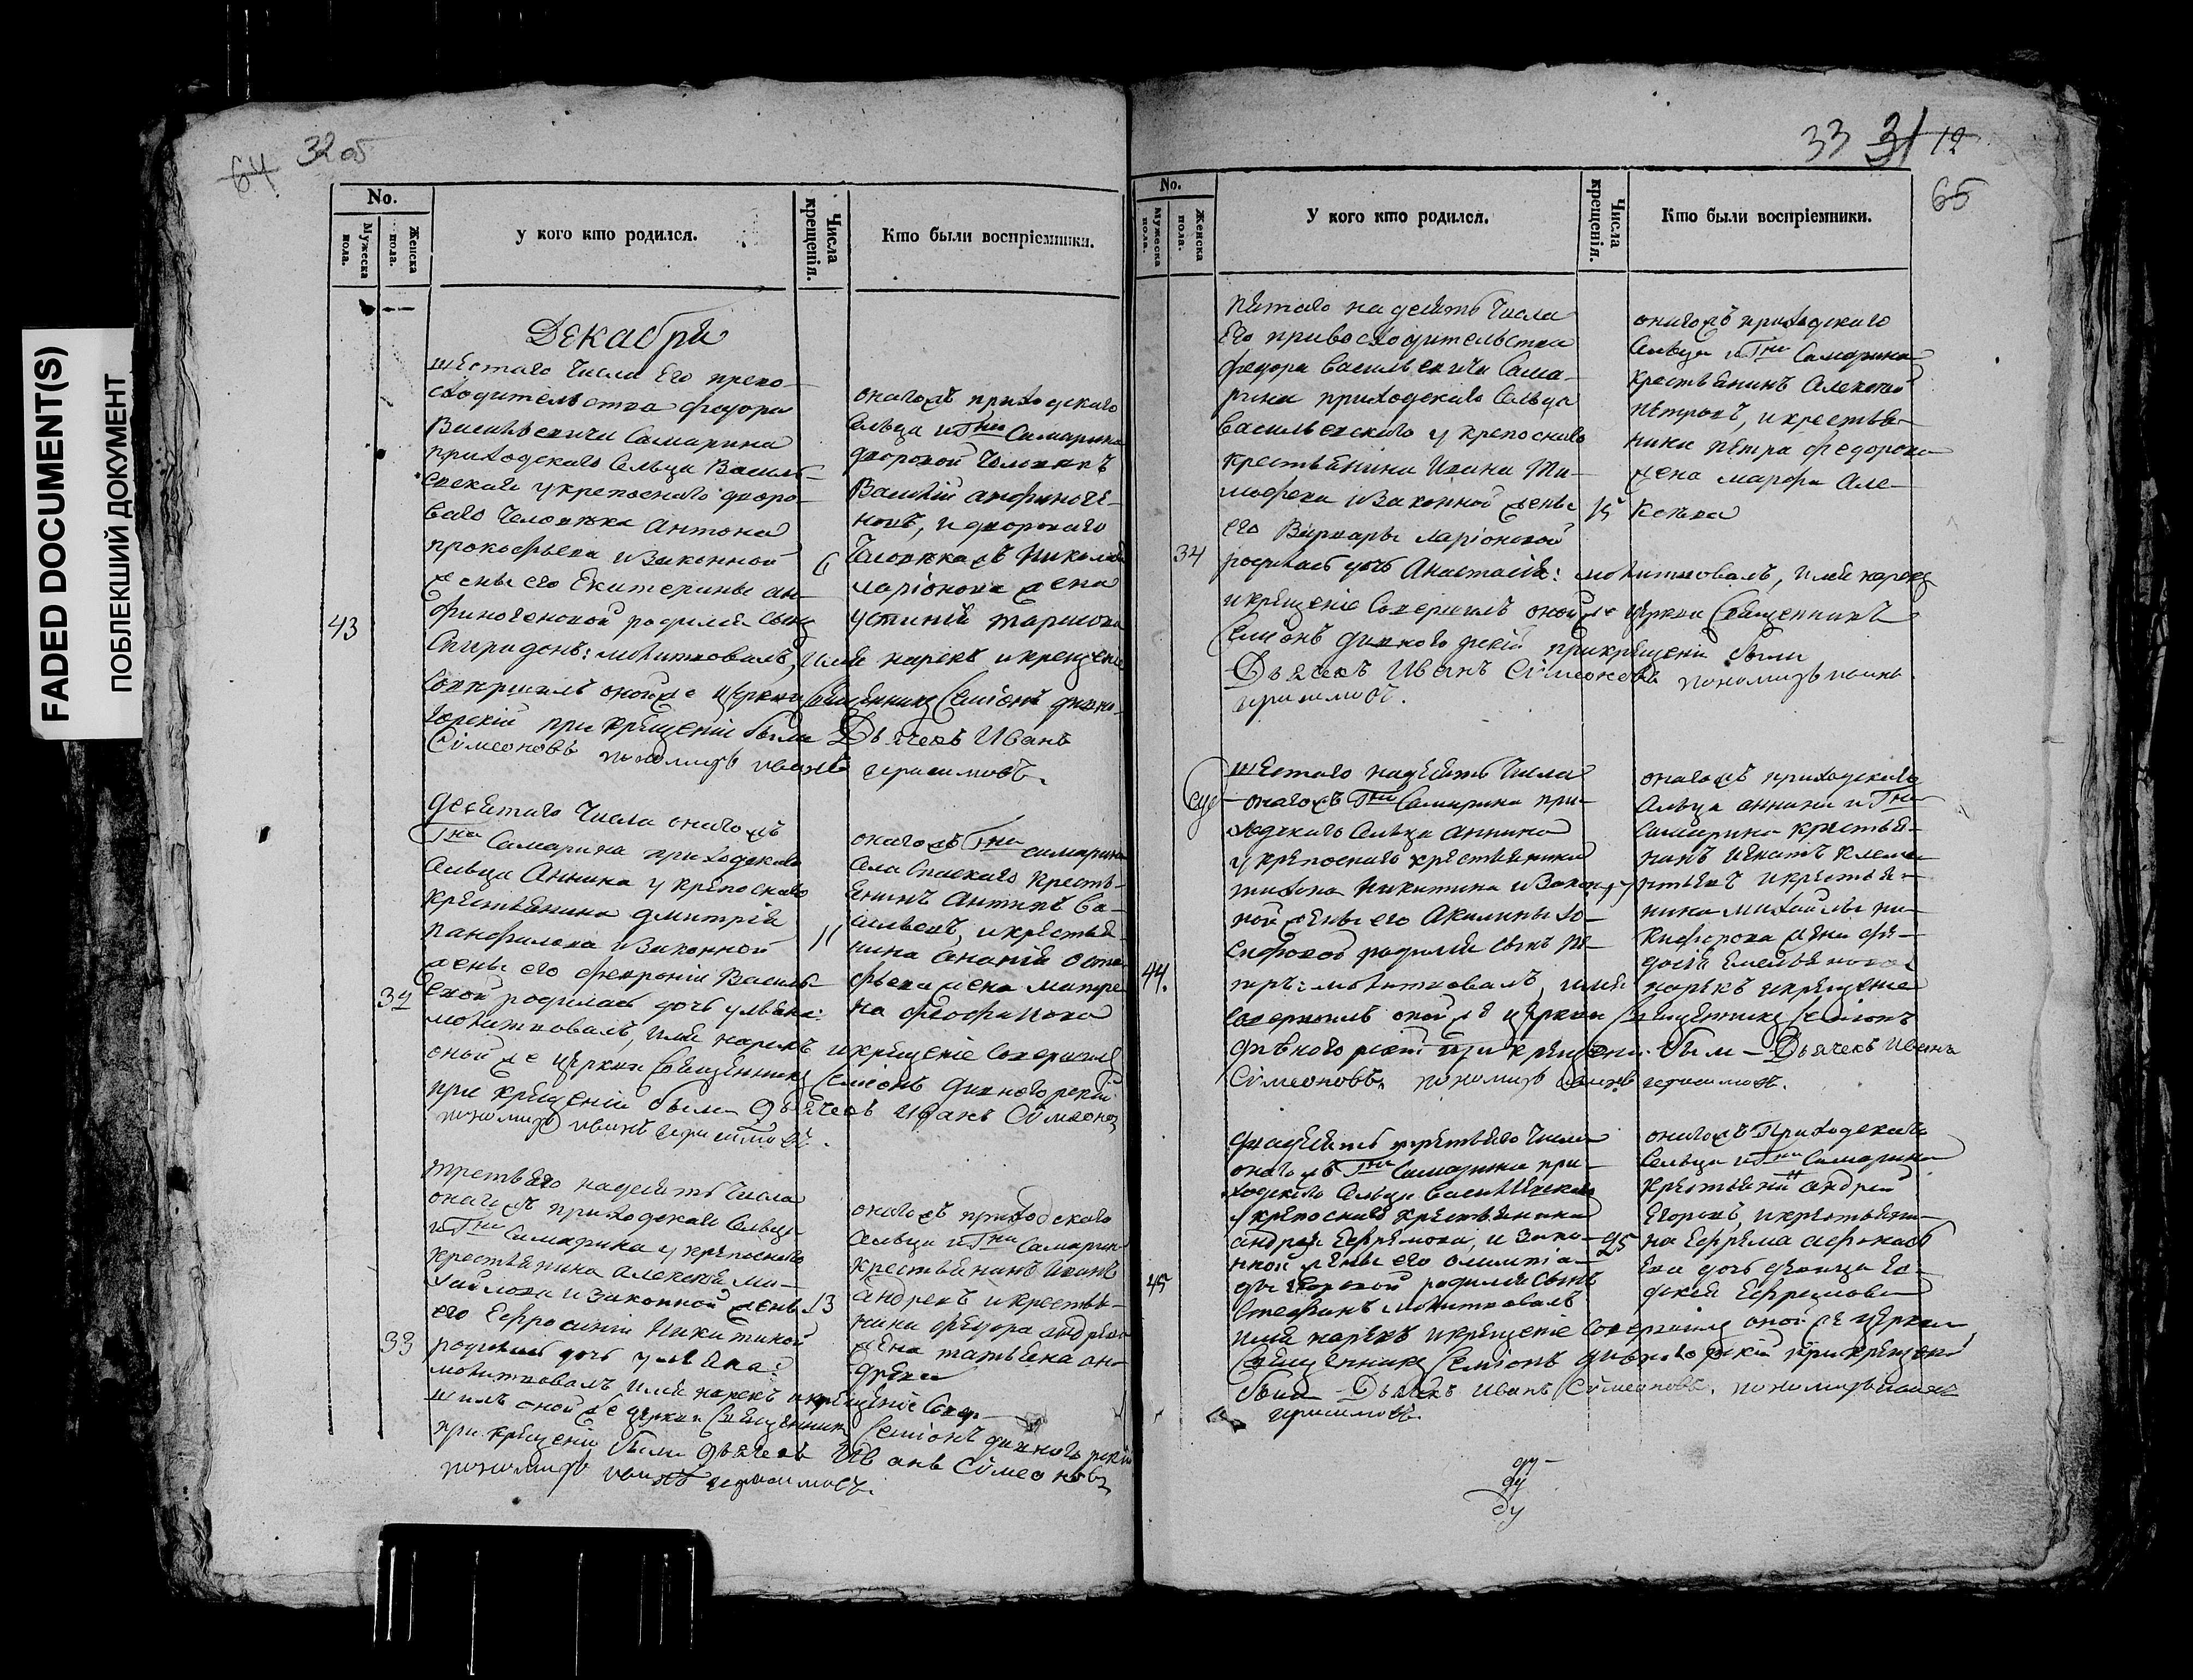 FADED DOCUMENT(S)
ПОБЛЕКШИЙ ДОКУМЕНТ
64 32 об
No.
Мужеска пола.
Женска пола.
У кого кто родился.
Числа крещенія.
Кто были воспріемники.
Декабря
шестаго Числа Его прево-
сходительства федора
Васильевича Самарина
приходскаго Сельца Василь-
евскаго у крепоснаго дворо-
ваго Человека Антона
прокофьева и Законной
жены его Екатерины ан-
финогеновой родился сынъ
43
Спиридонъ: молитвовалъ, имя нарекъ и крещеніе
совершилъ оной же церкви Священникъ Семіонъ дивно-
горскій при крещеніи были Дьячекъ Иванъ
Сѵмеоновъ пономарь иванъ герасимовъ.
онагожъ приходскаго
Сельца и Гна Самарина
дворовой Человекъ
Василій анфиноге-
новъ, и двороваго
6
Человекажъ Николая
ларіонова жена
устинія
десятаго Числа онагожъ
Гна Самарина приходскаго
Сельца Аннина у крепоснаго
крестьянина дмитрія
панфилова и Законной
жены его февроніи Василь-
32
евой родилась дочь ульяна:
молитвовалъ, имя нарекъ и крещеніе совершилъ
оной же церкви Священникъ Семіонъ дивногорскій
при крещеніи были дьячекъ Иванъ Сѵмеоновъ
пономарь иванъ герасимовъ.
онагожъ Гна самарина
Села Спаскаго кресть-
янинъ Антипъ Ва-
11
сильевъ, и крестья-
нина Ананія оста-
фьева жена матре-
на феофанова
третьяго надесять Числа
онагожъ приходскаго Сельца
и Гна Самарина у крепоснаго
крестьянина алексея ми-
хайлова и законной жены
его Ефросиніи Никитиной
33
родилась дочь ульяна:
молитвовалъ имя нарекъ и крещеніе совер-
шилъ оной же церкви Священникъ Семіонъ дивногорскій
при крещеніи были дьячекъ Иванъ Сѵмеоновъ
пономарь иванъ герасимовъ.
онагожъ приходскаго
Сельца и Гна Самарина
крестьянинъ Иванъ
13
андревъ и крестья-
нина федора андреева
жена татьяна ан-
древа
33 31 12
65
No.
Мужеска пола.
Женска пола.
У кого кто родился.
Числа крещенія.
Кто были воспріемники.
пятаго надесять Числа
Его превосходительства
федора васильевича Сама-
рина приходскаго Сельца
васильевскаго у крепоснаго
крестьянина Ивана Ти-
мофеева и Законной жены
его Варвары ларіоновой
34
родилась дочь Анастасія: молитвовалъ, имя нарекъ
и крещеніе Совершилъ оной же церкви Священникъ
Семіонъ дивногорскій при крещеніи были
Дьячекъ Иванъ Сѵмеоновъ пономарь иванъ
герасимовъ.
онагожъ приходскаго
Сельца и Гна Самарина
крестьянинъ Алексей
петровъ, и крестья-
нина петра федорова
жена марфа Але-
15
ксеева
шестаго надесять Числа
онагожъ Гна Самарина при-
ходскаго Сельца аннина
у крепоснаго крестьянина
тихона Никитина и Закон-
ной жены его Акилины Іо-
сифовой родился сынъ пе-
44.
тръ: молитвовалъ, имя нарекъ и крещеніе
совершилъ оной же церкви Священникъ Семіонъ
дивногорскій при крещеніи были Дьячекъ Иванъ
Сѵмеоновъ. пономарь иванъ герасимовъ.
онагожъ приходскаго
Сельца аннина и Гна
Самарина крестья-
нинъ игнатъ клеме-
17
нтьевъ и крестья-
нина михайлы ни-
кифорова жена фе-
досія Емельянова
дватцать третьяго Числа
онагожъ Гна Самарина при-
ходскаго Сельца Васильевскаго
у крепоснаго крестьянина
андрея Ефремова, и зако-
нной жены его олимпіа-
45
ды Егоровой родился сынъ
Стефанъ молитвовалъ
имя нарекъ и крещеніе Совершилъ оной же церкви
Священникъ Семіонъ дивногорскій при крещеніи
были Дьячекъ Иванъ Сѵмеоновъ. пономарь иванъ
герасимовъ.
онагожъ Приходскаго
Сельца и Гна Самарина
крестьянинъ андрей
Егоровъ, и крестьяни-
25
на Ефрема
дочь девица Ев-
докія Ефремова
ду
ду
ду